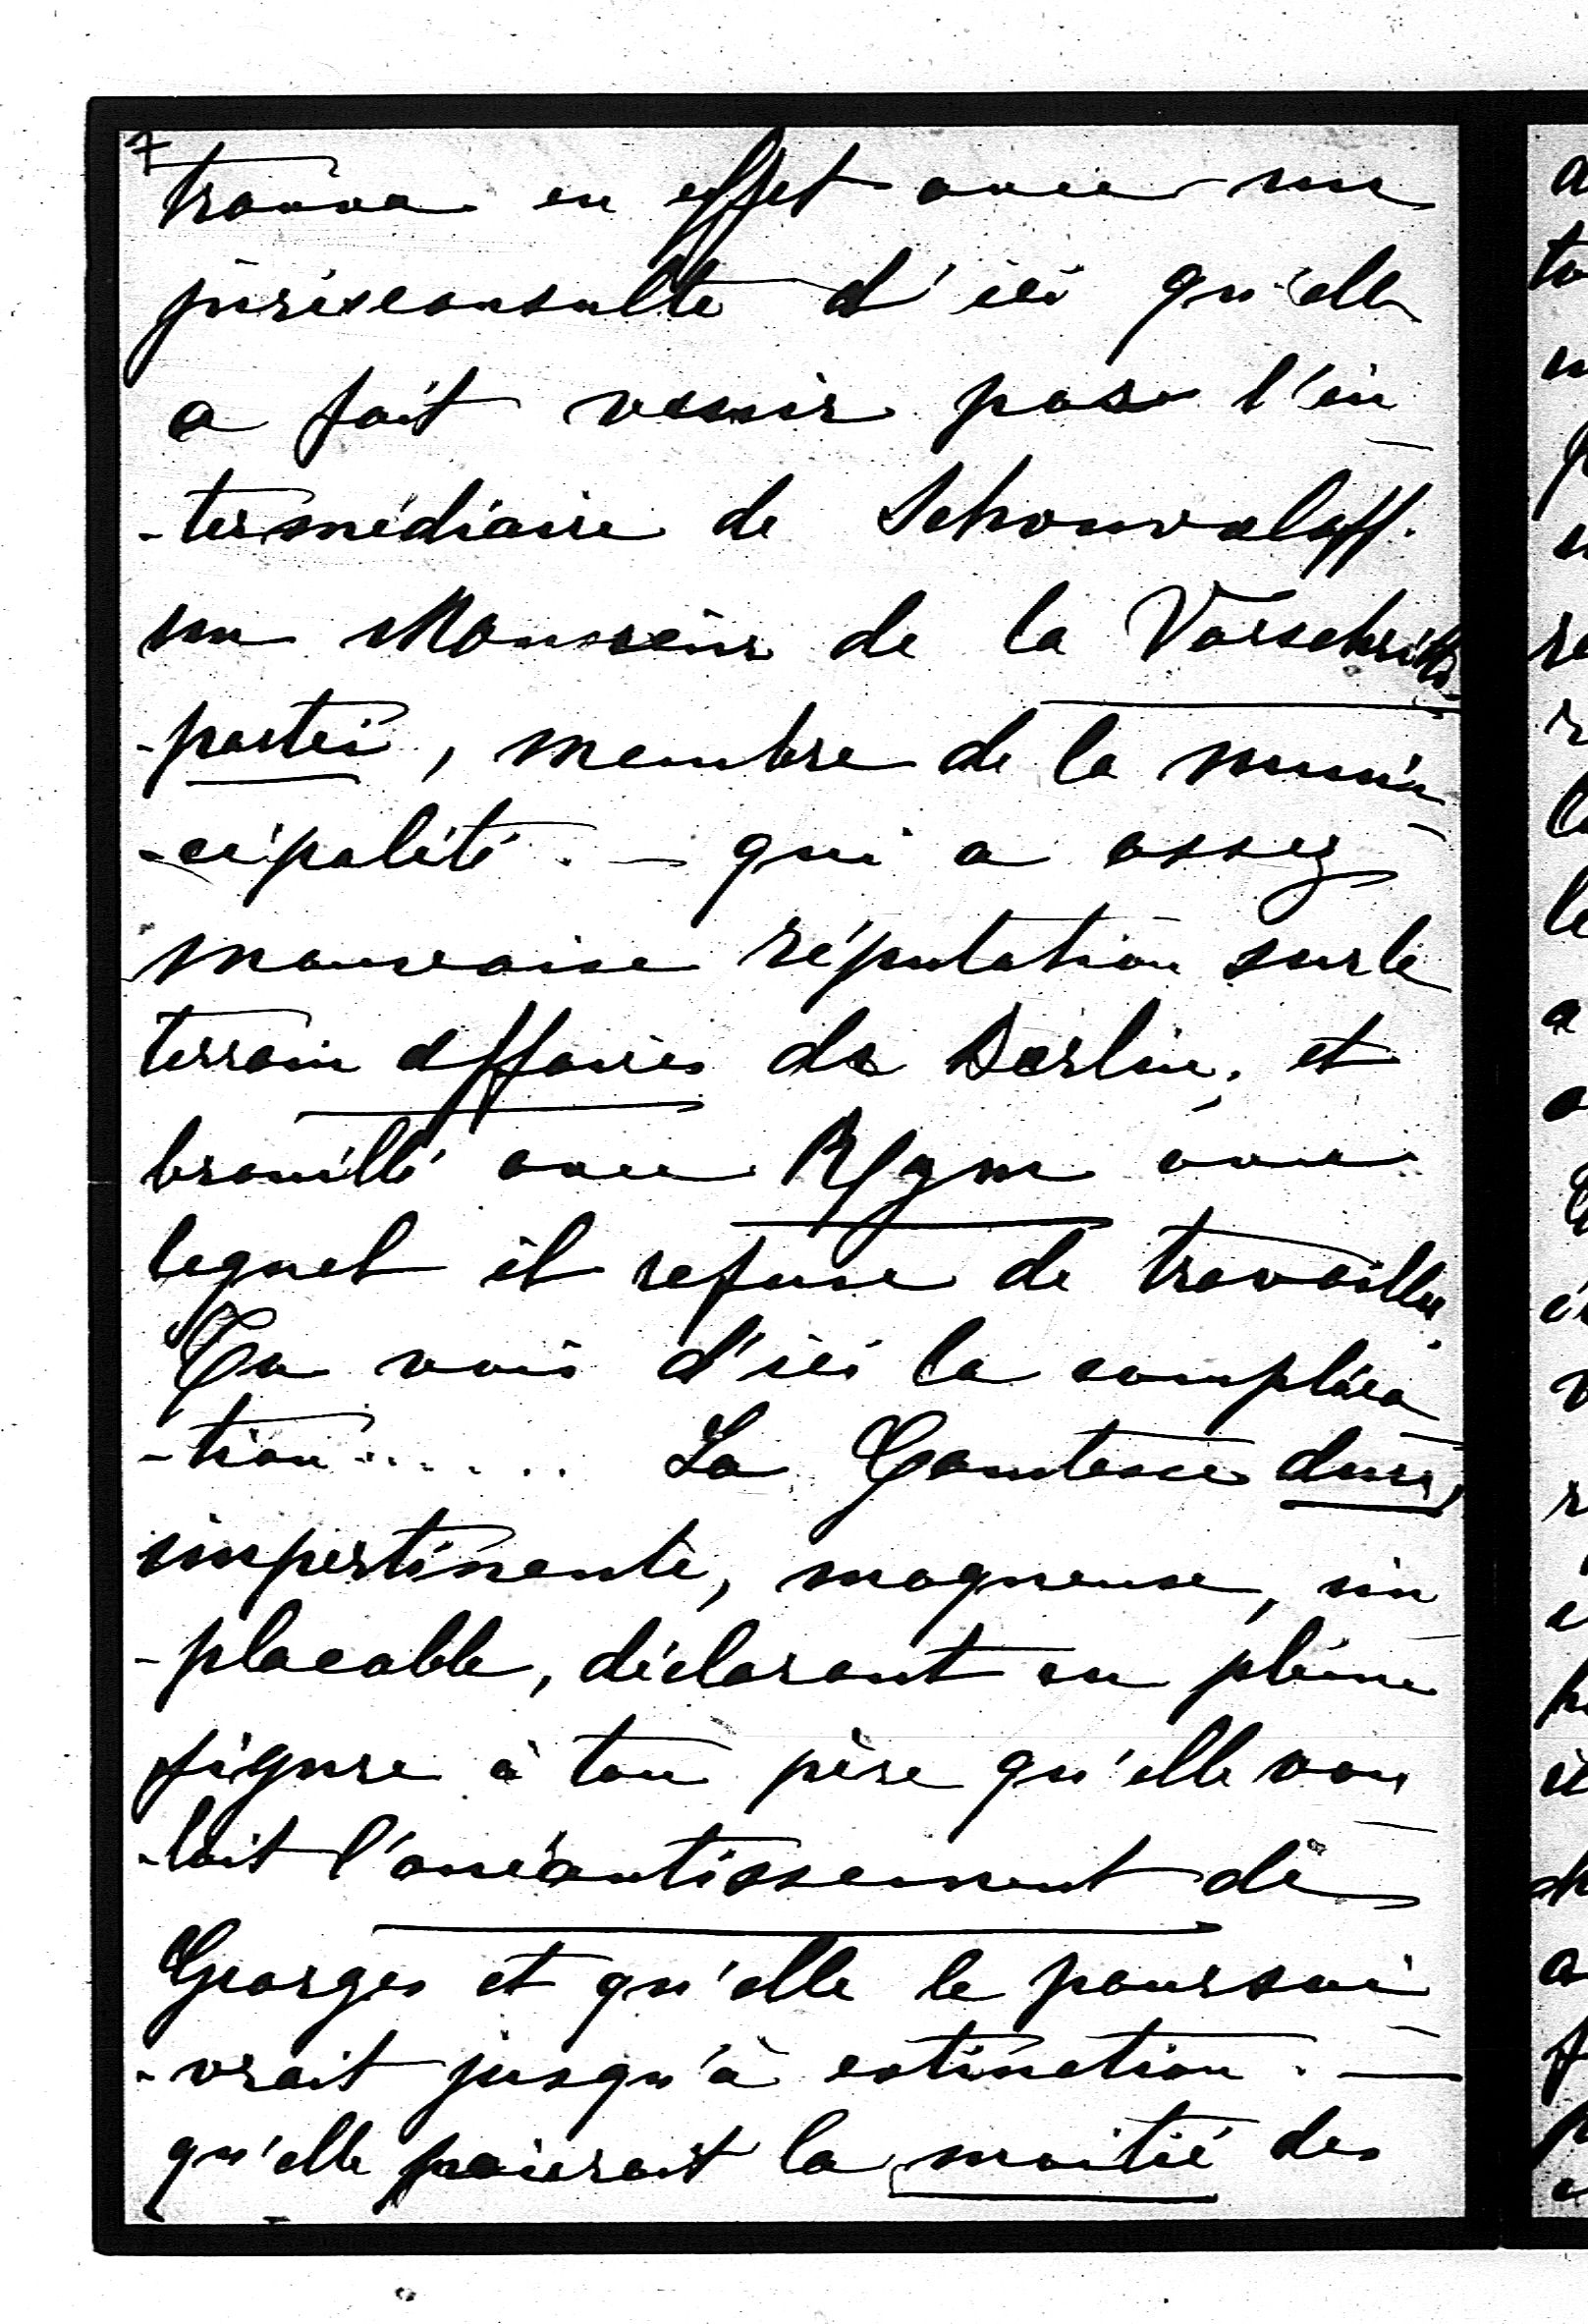 7
trouva en effet avec un
jurisconsulte d'ici qu'elle
a fait venir par l'in
-termédiaire de Schouvaloff.
un Monsieur de la Vorschritts-
-partei, membre de la muni
-cipalité. — qui a assez
mauvaise réputation sur le
terrain affaires de Berlin, et
brouillé avec avec
lequel il refuse de travailler.
Tu vois d'ici la complica
-tion...... La Comtesse dure,
impertinente, moqueuse, im
-placable, déclarant en pleine
figure à ton père qu'elle vou
-lait l'anéantissement de
Georges et qu'elle le poursui
-vrait jusqu'à extinction. —
qu'elle paierait la moitié des